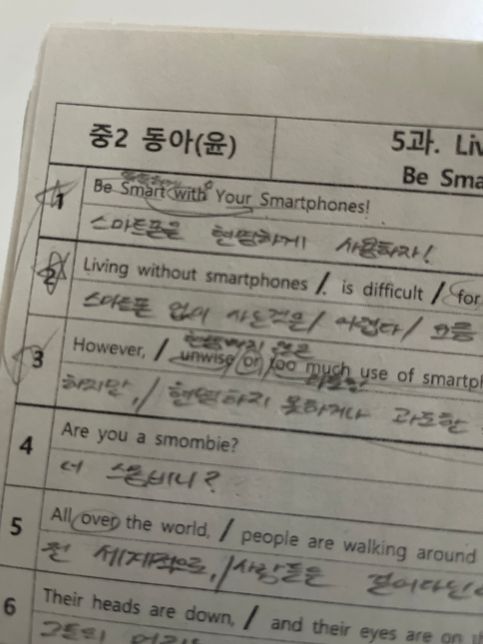 중2 동아(윤)
5과. Liv
Be Sma
1
Be Smart with Your Smartphones!
스마트폰을 현명하게 사용하자!
2
Living without smartphones / is difficult / for
스마트폰 없이 사는것은 / 어렵다 / 요즘
현명하지 않은
3
However, / unwise or too much use of smartph
하지만, / 현명하지 못하거나 과도한
4
Are you a smombie?
너 스몸비니?
5
All over the world, / people are walking around
전 세계적으로, / 사람들은 걸어다닌
6
Their heads are down, / and their eyes are on
그들의 머리